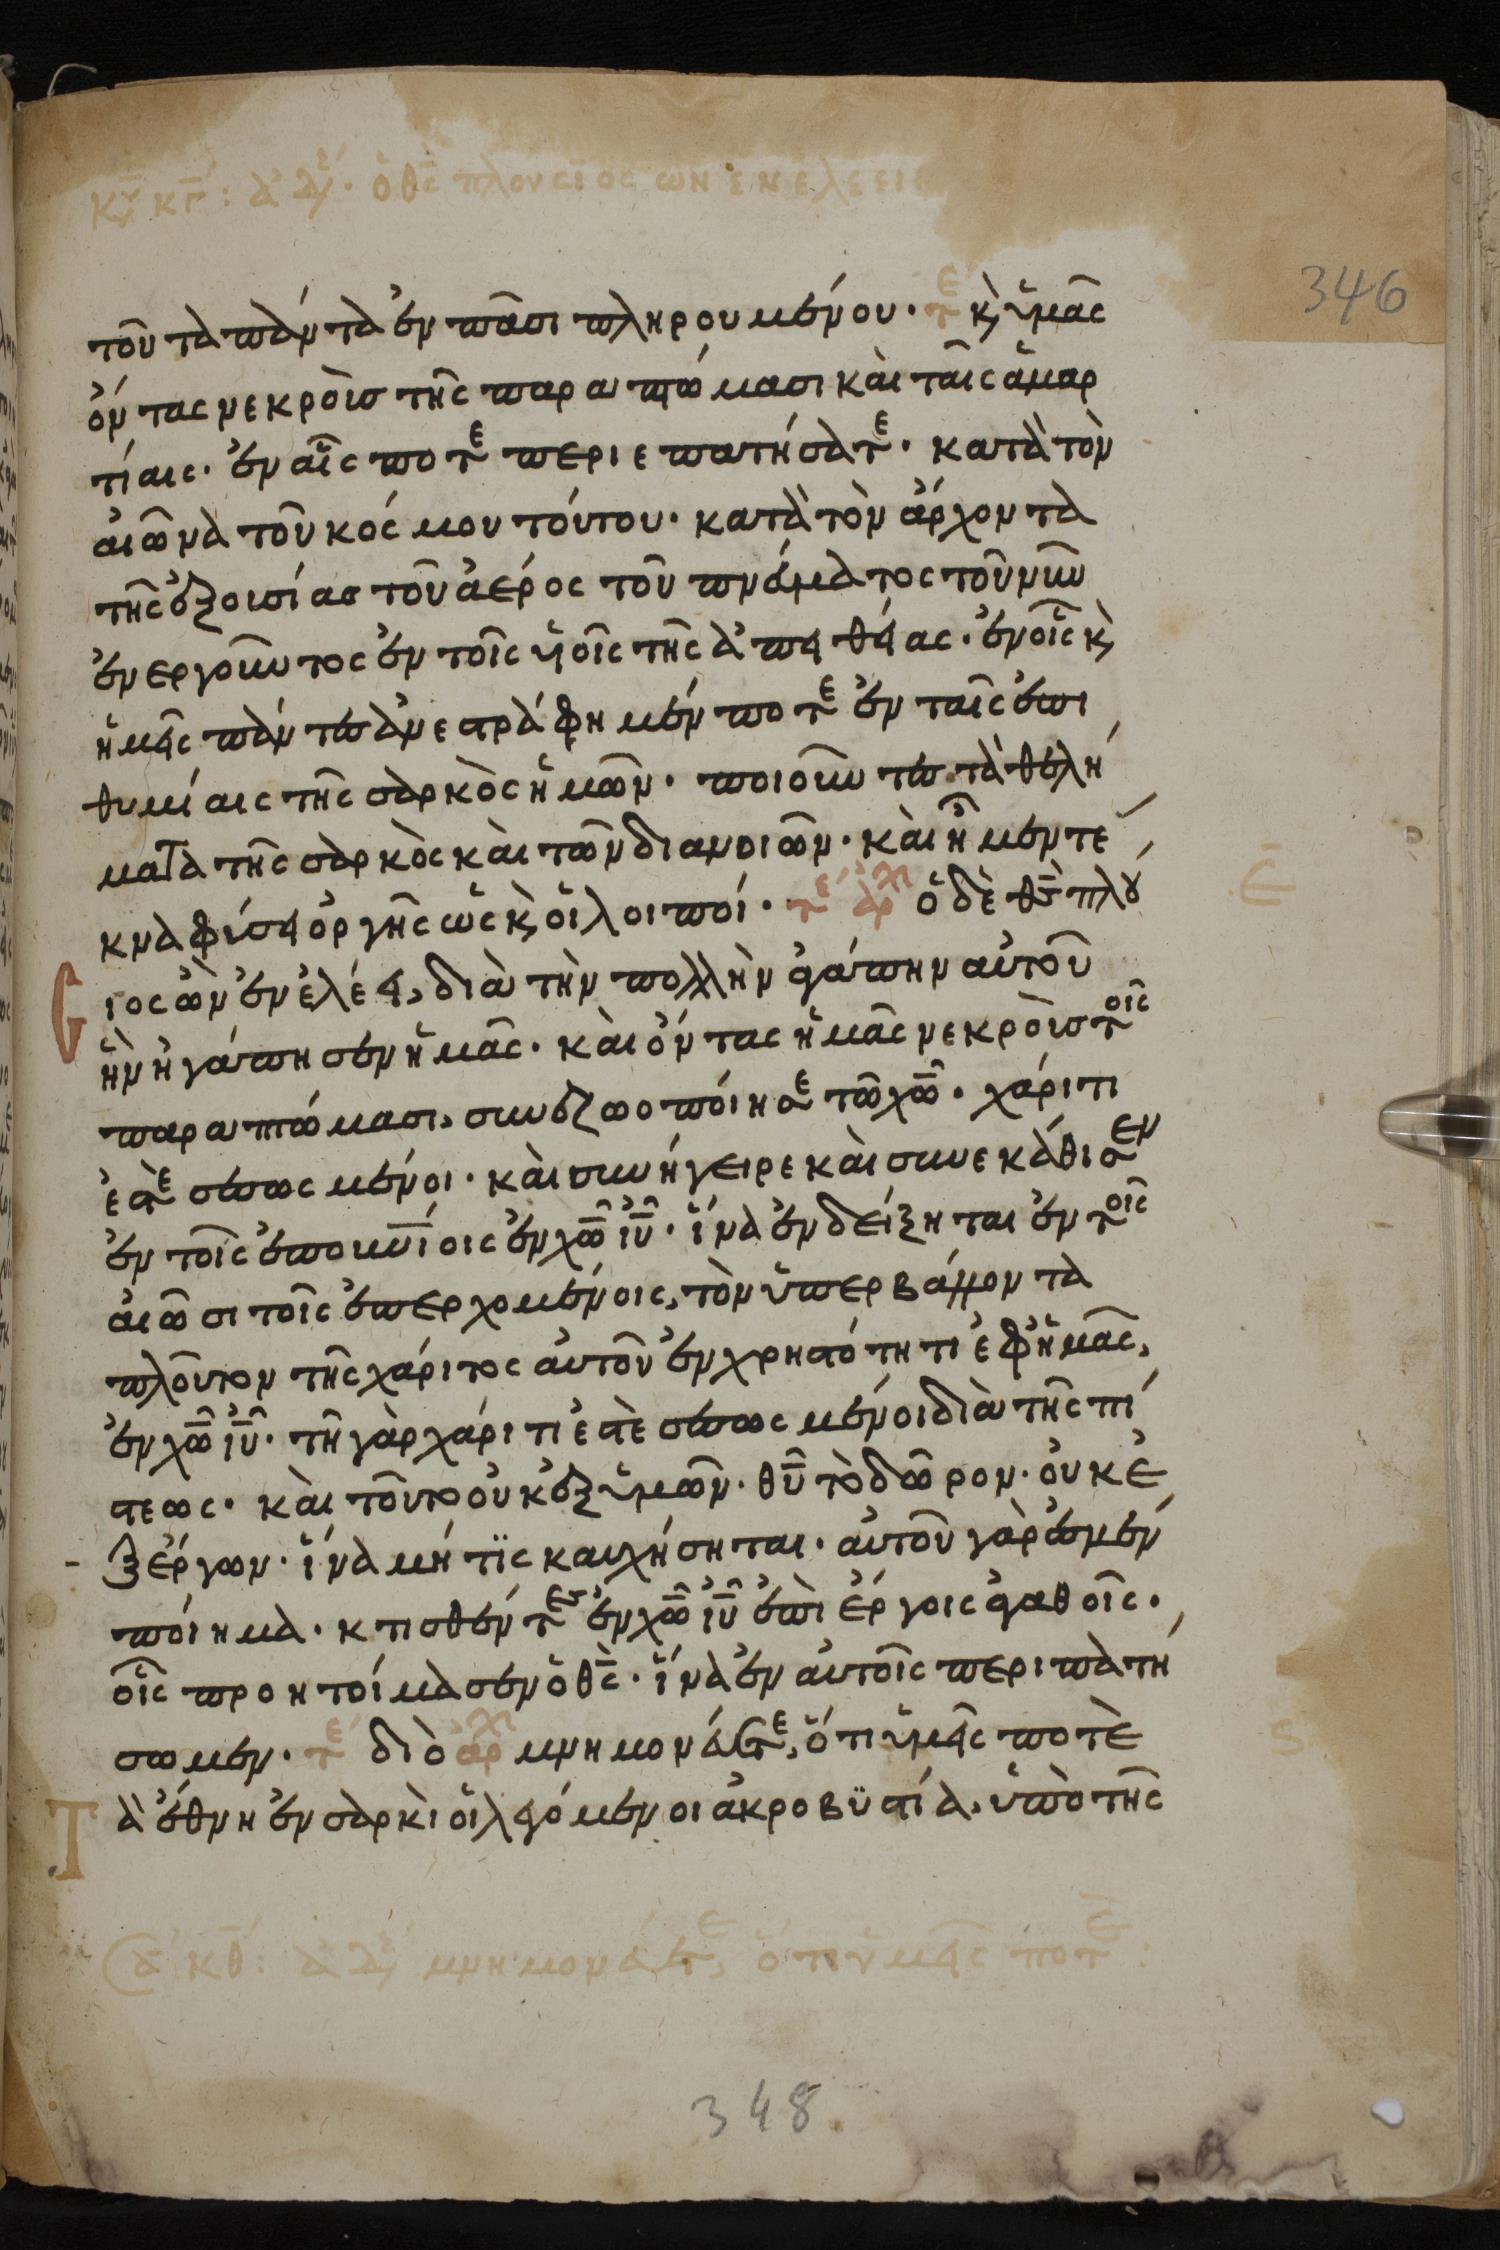 κυ κγ: ἀδ. ὁ θς πλουσιος ων εν ελεει
346
τοῦ τὰ πάντα ἐν πᾶσι πληρουμένου· τε κ ὑμᾶς
ὄντας νεκροὺσ τῆς παραπτώμασι καὶ ταῖς ἁμαρ
τίαις· ἐν αἷς ποτε περιεπατήσατε· κατὰ τὸν
αἰῶνα τοῦ κόσμου τούτου· κατὰ τὸν ἄρχοντα
τῆς ἐξουσίας τοῦ ἀέρος τοῦ πνεύματος τοῦ νῦν
ἐνεργοῦντος ἐν τοῖς ὑοῖς τῆς ἀπειθείας· ἐν οἷς κ
ἡμεῖς πάντες ἀνεστράφημέν ποτε ἐν ταῖς ἐπι
θυμίαις τῆς σαρκὸς ἡμῶν· ποιοῦντες τὰ θελή
ματα τῆς σαρκὸς καὶ τῶν διανοιῶν· καὶ ἦμεν τέ
κνα φύσει ὀργῆς ὡς κ οἱ λοιποί· τε αρχ ὁ δὲ θς πλού
Ε
ιος ὢν ἐν ἐλέει, διὰ τὴν πολλὴν ἀγάπην αὐτοῦ
ἣν ἠγάπησεν ἡμᾶς· καὶ ὄντας ἡμᾶς νεκροὺσ τοῖς
παραπτώμασι, συνεζωοποίησε τῶ χῶ· χάριτι
ἐστὲ σεσωσμένοι· καὶ συνήγειρε καὶ συνεκάθισεν
ἐν τοῖς ἐπουνίοις ἐν χῶ ιῦ· ἵνα ἐνδείξηται ἐν τοῖς
αἰῶσι τοῖς ἐπερχομένοις, τὸν ὑπερβάλλοντα
πλοῦτον τῆς χάριτος αὐτοῦ ἐν χρηστότητι ἐφ ἡμᾶς,
ἐν χῶ ιῦ· τῆ γὰρ χάριτι ἐστὲ σεσωσμένοι διὰ τῆς πί
στεως· καὶ τοῦτο οὐκ ἐξ ὑμῶν· θῦ τὸ δῶρον· οὐκ ἐ
ξ ἔργων· ἵνα μή τϊς καυχήσηται· αὐτοῦ γάρ ἐσμέν
ποίημα· κτισθέντες ἐν χῶ ιῦ ἐπὶ ἔργοις ἀγαθοῖς·
οἷς προητοίμασεν ὁ θς· ἵνα ἐν αὐτοῖς περιπατή
σωμεν· τε διὸ αρχ μνημονεύετε, ὅτι ὑμεῖς ποτὲ
τὰ ἔθνη ἐν σαρκὶ οἱ λεγόμενοι ἀκροβϋστία, ὑπὸ τῆς
κθ: ἀδ μνημονεύετε, ὅτι ὑμεῖς ποτε:
348